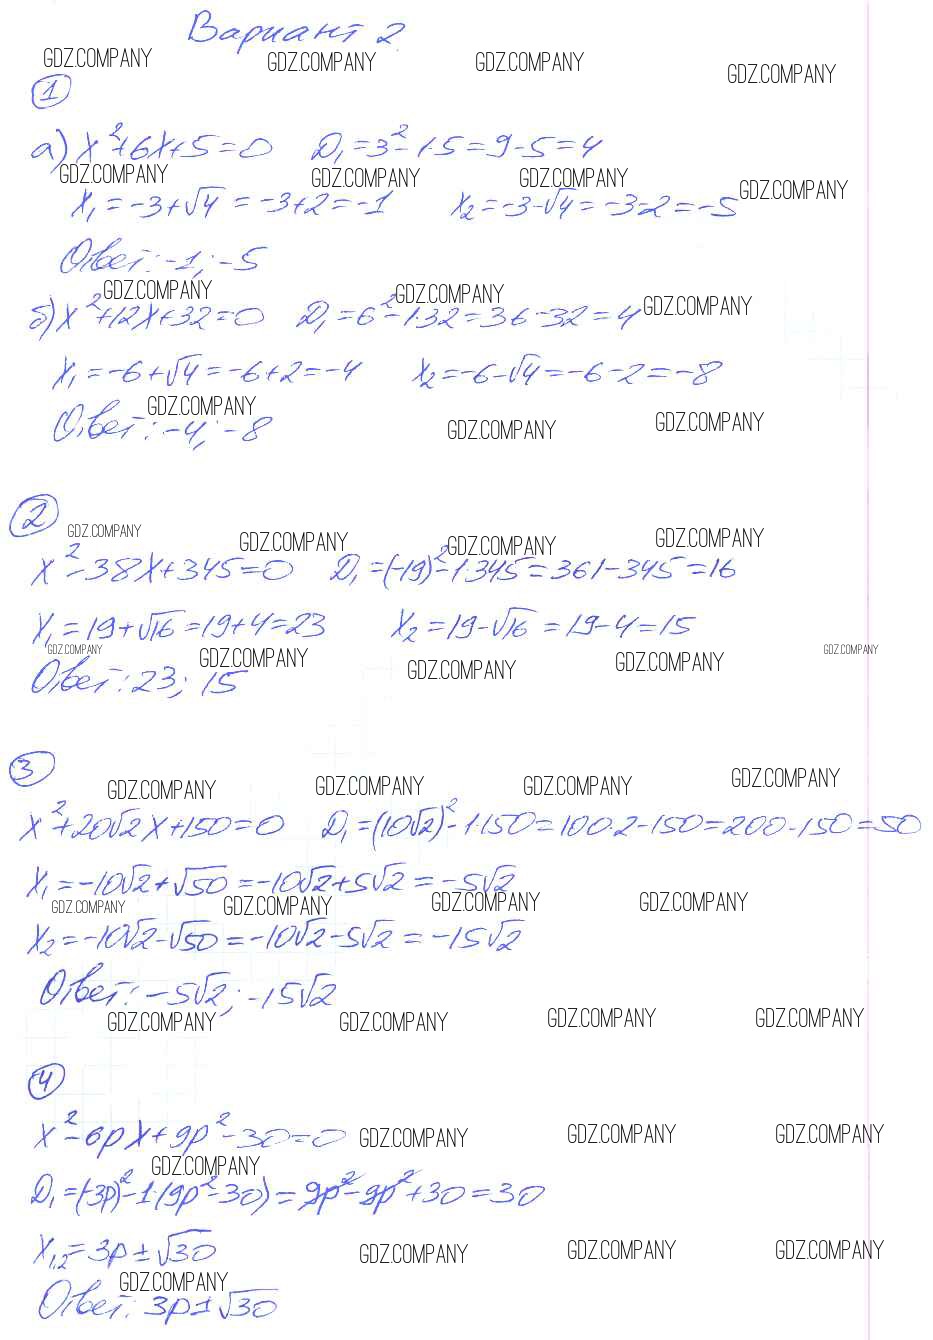 Вариант 2.
GDZ.COMPANY GDZ.COMPANY GDZ.COMPANY GDZ.COMPANY
1
а) x²+6x+5=0 D₁=3²-1·5=9-5=4
GDZ.COMPANY GDZ.COMPANY GDZ.COMPANY GDZ.COMPANY
x₁=-3+√4=-3+2=-1 x₂=-3-√4=-3-2=-5
Ответ: -1; -5
GDZ.COMPANY GDZ.COMPANY GDZ.COMPANY
б) x²+12x+32=0 D₁=6²-1·32=36-32=4
x₁=-6+√4=-6+2=-4 x₂=-6-√4=-6-2=-8
GDZ.COMPANY GDZ.COMPANY GDZ.COMPANY
Ответ: -4; -8
2
GDZ.COMPANY GDZ.COMPANY GDZ.COMPANY GDZ.COMPANY
x²-38x+345=0 D₁=(-19)²-1·345=361-345=16
x₁=19+√16=19+4=23 x₂=19-√16=19-4=15
GDZ.COMPANY GDZ.COMPANY GDZ.COMPANY GDZ.COMPANY GDZ.COMPANY
Ответ: 23; 15
3
GDZ.COMPANY GDZ.COMPANY GDZ.COMPANY GDZ.COMPANY
x²+20√2x+150=0 D₁=(10√2)²-1·150=100·2-150=200-150=50
x₁=-10√2+√50=-10√2+5√2=-5√2
GDZ.COMPANY GDZ.COMPANY GDZ.COMPANY GDZ.COMPANY
x₂=-10√2-√50=-10√2-5√2=-15√2
Ответ: -5√2; -15√2
GDZ.COMPANY GDZ.COMPANY GDZ.COMPANY GDZ.COMPANY
4
x²-6px+9p²-30=0
GDZ.COMPANY GDZ.COMPANY GDZ.COMPANY
GDZ.COMPANY
D₁=(-3p)²-1·(9p²-30)=9p²-9p²+30=30
x₁,₂=3p±√30
GDZ.COMPANY GDZ.COMPANY GDZ.COMPANY
GDZ.COMPANY
Ответ: 3p±√30